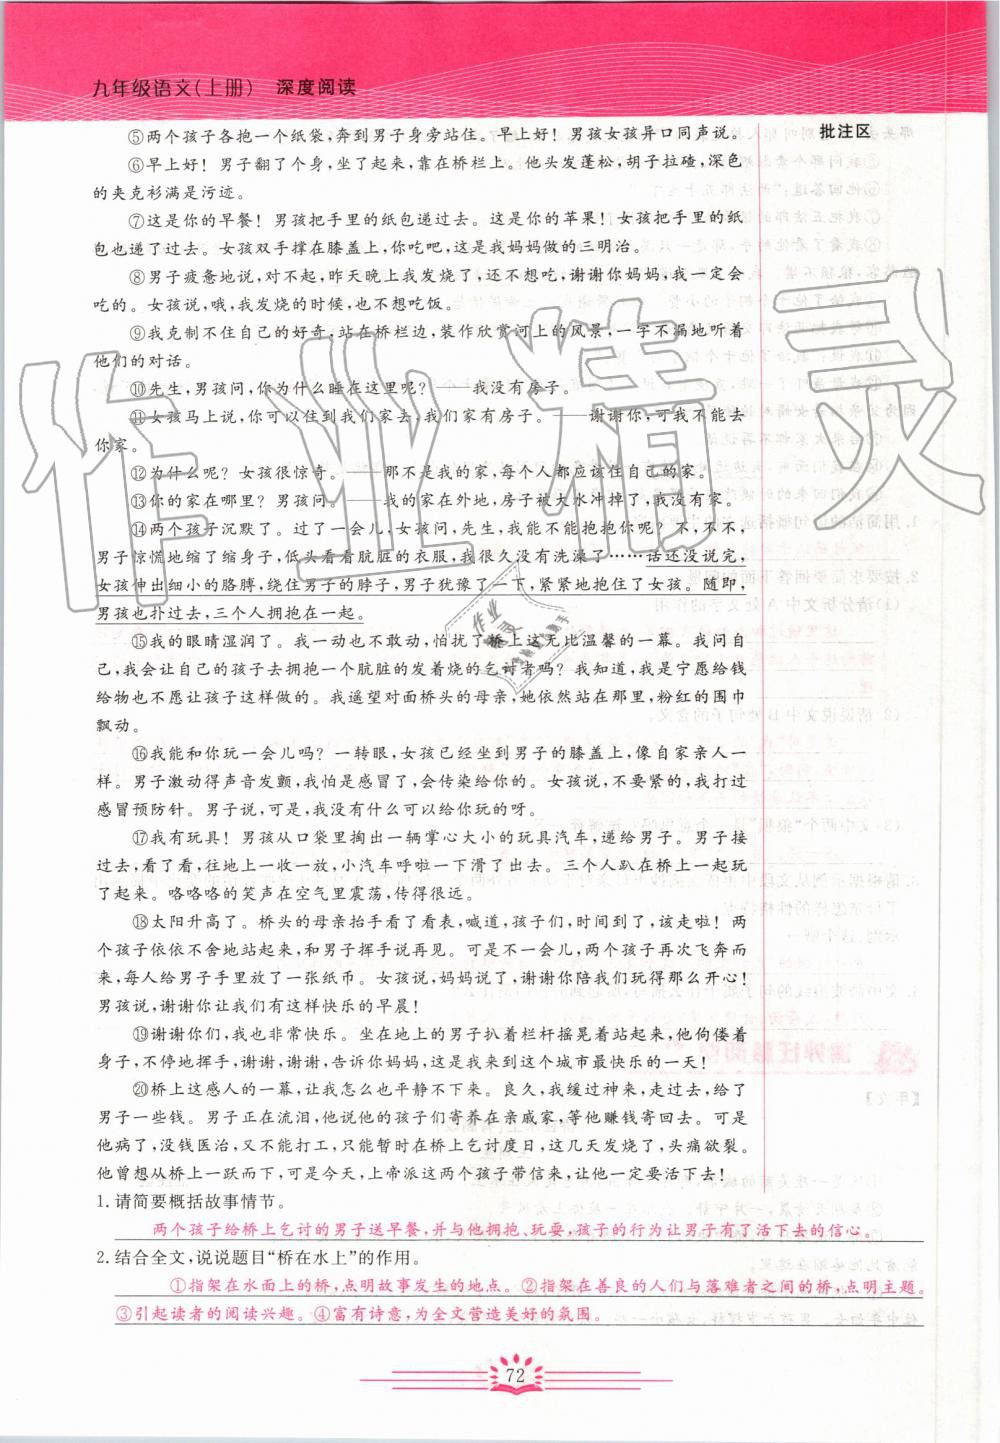 九年级语文(上册) 深度阅读
批注区
⑤两个孩子各抱一个纸袋,奔到男子身旁站住。早上好!男孩女孩异口同声说。
⑥早上好!男子翻了个身,坐了起来,靠在桥栏上。他头发蓬松,胡子拉碴,深色
的夹克衫满是污迹。
⑦这是你的早餐!男孩把手里的纸包递过去。这是你的苹果!女孩把手里的纸
包也递了过去。女孩双手撑在膝盖上,你吃吧,这是我妈妈做的三明治。
⑧男子疲惫地说,对不起,昨天晚上我发烧了,还不想吃,谢谢你妈妈,我一定会
吃的。女孩说,哦,我发烧的时候,也不想吃饭。
⑨我克制不住自己的好奇,站在桥栏边,装作欣赏河上的风景,一字不漏地听着
他们的对话。
⑩先生,男孩问,你为什么睡在这里呢?——我没有房子。
⑪女孩马上说,你可以住到我们家去,我们家有房子。——谢谢你,可我不能去
你家。
⑫为什么呢?女孩很惊奇。——那不是我的家,每个人都应该住自己的家。
⑬你的家在哪里?男孩问。——我的家在外地,房子被大水冲掉了,我没有家。
⑭两个孩子沉默了。过了一会儿,女孩问,先生,我能不能抱抱你呢?不,不,不,
男子惊慌地缩了缩身子,低头看看肮脏的衣服,我很久没有洗澡了……话还没说完,
女孩伸出细小的胳膊,绕住男子的脖子,男子犹豫了一下,紧紧地抱住了女孩。随即,
男孩也扑过去,三个人拥抱在一起。
⑮我的眼睛湿润了。我一动也不敢动,怕扰了桥上这无比温馨的一幕。我问自
己,我会让自己的孩子去拥抱一个肮脏的发着烧的乞讨者吗?我知道,我是宁愿给钱
给物也不愿让孩子这样做的。我遥望对面桥头的母亲,她依然站在那里,粉红的围巾
飘动。
⑯我能和你玩一会儿吗?一转眼,女孩已经坐到男子的膝盖上,像自家亲人一
样。男子激动得声音发颤,我怕是感冒了,会传染给你的。女孩说,不要紧的,我打过
感冒预防针。男子说,可是,我没有什么可以给你玩的呀。
⑰我有玩具!男孩从口袋里掏出一辆掌心大小的玩具汽车,递给男子。男子接
过去,看了看,往地上一收一放,小汽车呼啦一下滑了出去。三个人趴在桥上一起玩
了起来。咯咯咯的笑声在空气里震荡,传得很远。
⑱太阳升高了。桥头的母亲抬手看了看表,喊道,孩子们,时间到了,该走啦!两
个孩子依依不舍地站起来,和男子挥手说再见。可是不一会儿,两个孩子再次飞奔而
来,每人给男子手里放了一张纸币。女孩说,妈妈说了,谢谢你陪我们玩得那么开心!
男孩说,谢谢你让我们有这样快乐的早晨!
⑲谢谢你们,我也非常快乐。坐在地上的男子扒着栏杆摇晃着站起来,他佝偻着
身子,不停地挥手,谢谢,谢谢,告诉你妈妈,这是我来到这个城市最快乐的一天!
⑳桥上这感人的一幕,让我怎么也平静不下来。良久,我拭过泪来,走过去,给了
男子一些钱。男子正在流泪,他说他的孩子们寄养在亲戚家,等他赚钱寄回去。可是
他病了,没钱医治,又不能打工,只能暂时在桥上乞讨度日,这几天发烧了,头痛欲裂。
他曾想从桥上一跃而下,可是今天,上帝派这两个孩子带信来,让他一定要活下去!
1. 请简要概括故事情节。
两个孩子给桥上乞讨的男子送早餐,并与他拥抱、玩耍,孩子的行为让男子有了活下去的信心。
2. 结合全文,说说题目“桥在水上”的作用。
①指架在水面上的桥,点明故事发生的地点。②指架在善良的人们与落难者之间的桥,点明主题。
③引起读者的阅读兴趣。④富有诗意,为全文营造美好的氛围。
72
作业精灵